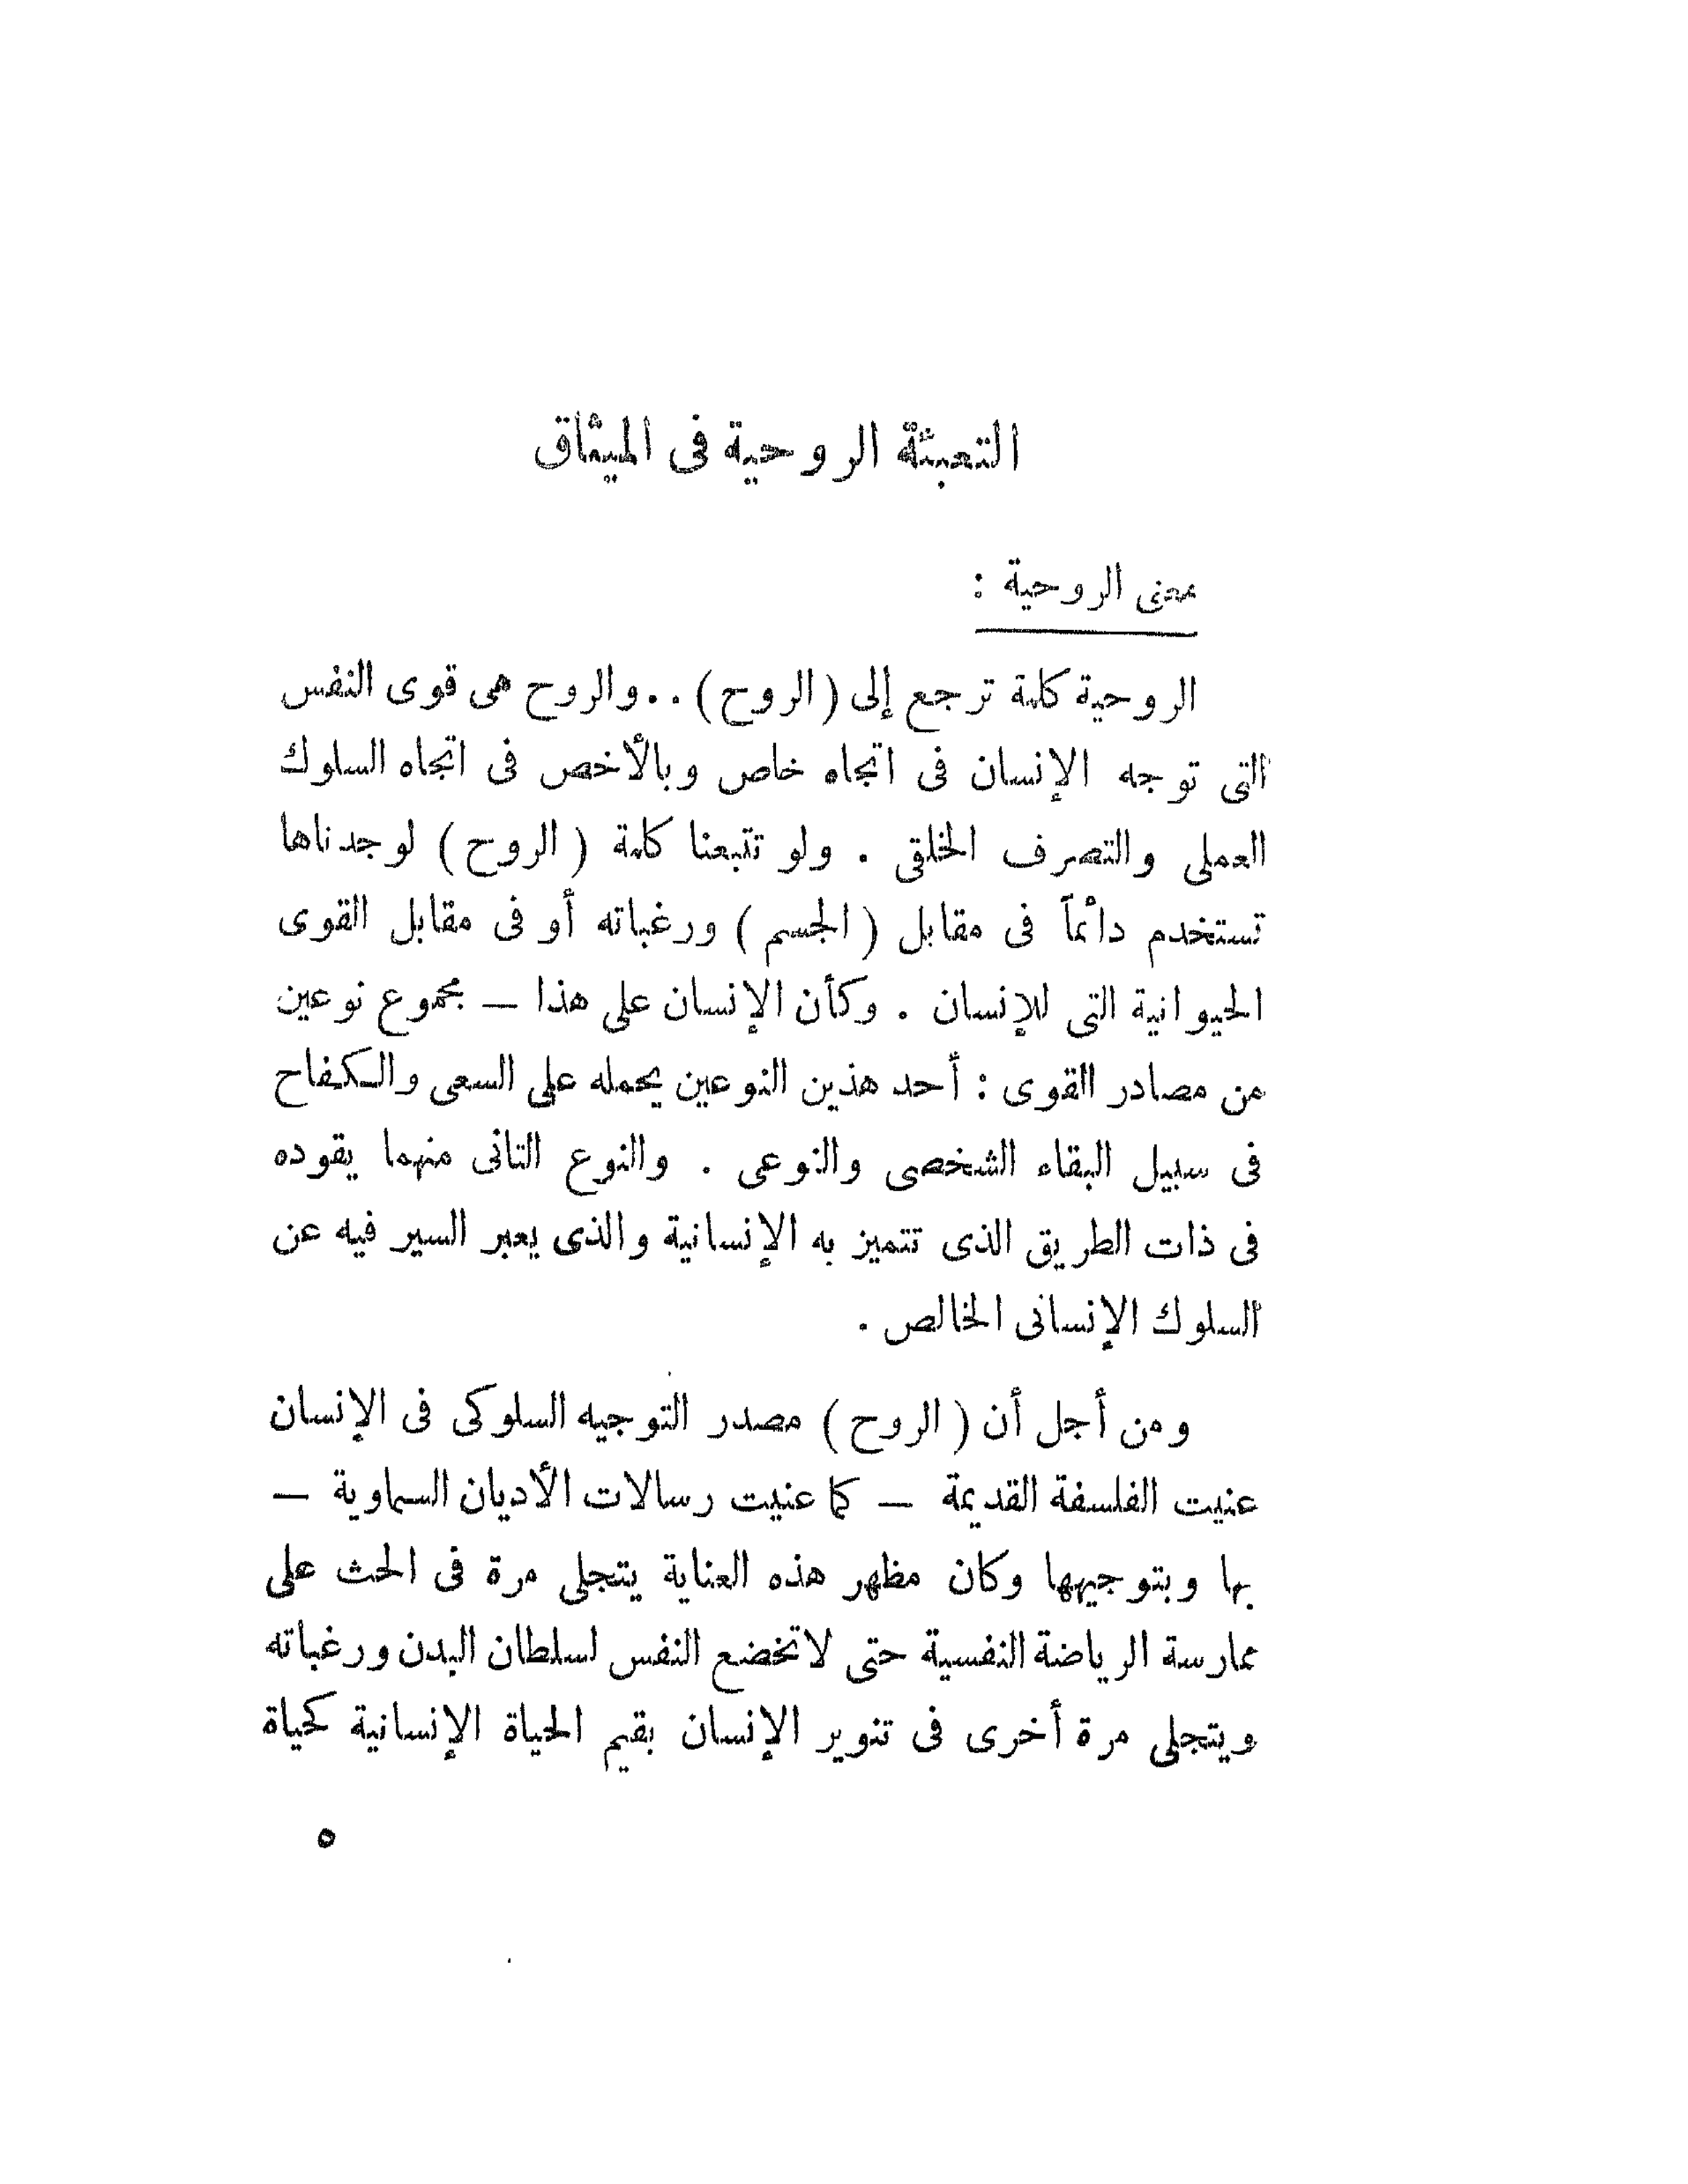 التعبئة الروحية فى الميثاق
معنى الروحية :
الروحية كلمة ترجع إلى ( الروح ) . . والروح هى قوى النفس
التى توجه الإنسان فى اتجاه خاص وبالأخص فى اتجاه السلوك
العملى والتصرف الخلقى . ولو تتبعنا كلمة ( الروح ) لوجدناها
تستخدم دائماً فى مقابل ( الجسم ) ورغباته أو فى مقابل القوى
الحيوانية التى للإنسان . وكأن الإنسان على هذا — مجموع نوعين
من مصادر القوى : أحد هذين النوعين يحمله على السعى والكفاح
فى سبيل البقاء الشخصى والنوعى . والنوع التانى منهما يقوده
فى ذات الطريق الذى تتميز به الإنسانية والذى يعبر السير فيه عن
السلوك الإنسانى الخالص .
ومن أجل أن ( الروح ) مصدر التوجيه السلوكى فى الإنسان
عنيت الفلسفة القديمة — كما عنيت رسالات الأديان السماوية —
بها وبتوجيهها وكان مظهر هذه العناية يتجلى مرة فى الحث على
ممارسة الرياضة النفسية حتى لاتخضع النفس لسلطان البدن ورغباته
ويتجلى مرة أخرى فى تنوير الإنسان بقيم الحياة الإنسانية كحياة
٥